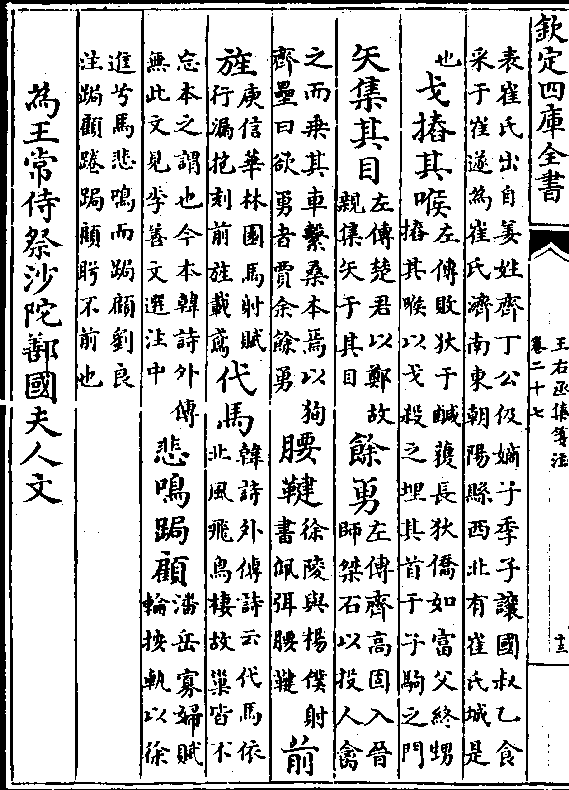 欽定四庫全書
王右丞集箋注
卷二十七
十三
表崔氏出自姜姓齊丁公伋嫡子季子讓國叔乙食
采于崔遂為崔氏濟南東朝陽縣西北有崔氏城是
也
戈摏其喉
左傳敗狄于鹹獲長狄僑如富父終甥
摏其喉以戈殺之埋其首于子駒之門
矢集其目
左傳楚君以鄭故
親集矢于其目
餘勇
左傳齊高固入晉
師桀石以投人禽
之而乗其車繫桑本焉以狥
齊壘曰欲勇者賈余餘勇
腰鞬
徐陵與楊僕射
書佩弭腰鞬
前
旌
庾信華林園馬射賦
行漏抱刻前旌載鳶
代馬
韓詩外傳詩云代馬依
北風飛鳥棲故巢皆不
忘本之謂也今本韓詩外傳
無此文見李善文選注中
悲鳴跼顧
潘岳寡婦賦
輪按軌以徐
進兮馬悲鳴而跼顧劉良
注跼顧踡跼顧眄不前也
為王常侍祭沙陀鄯國夫人文